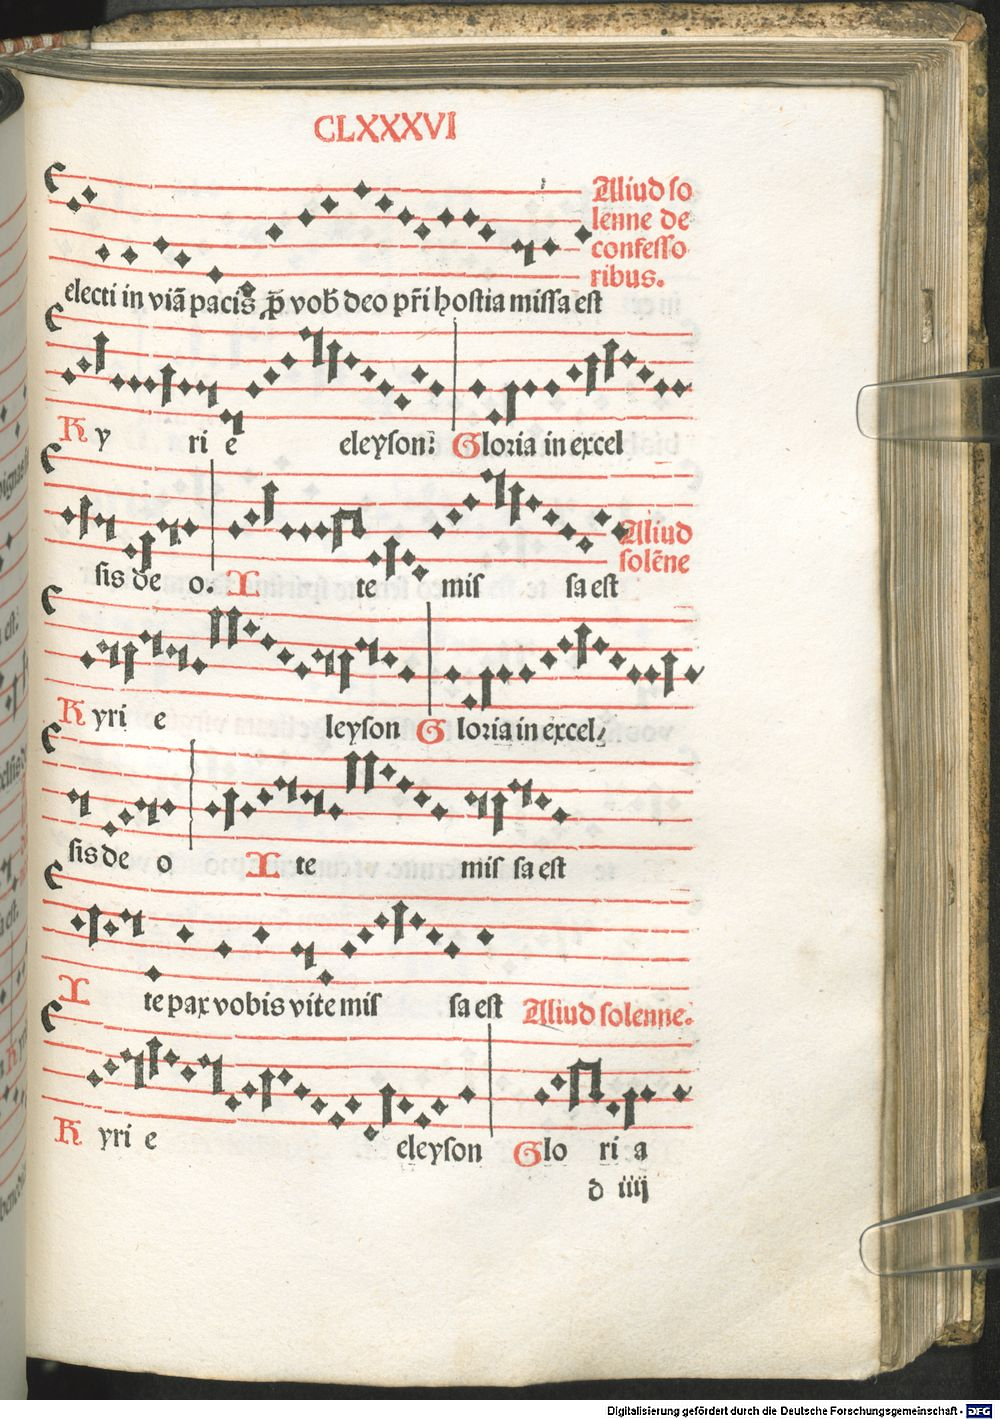 CLXXXVI
Aliud so
lenne de
confesso
ribus.
electi in viā pacis ꝓ vob̄ deo pr̄i hostia missa est
Ky ri e eleyson: Gloria in excel
Aliud
solēne
sis de o. I te mis sa est
Kyri e leyson Gloria in excel
sis de o I te mis sa est
I te pax vobis vite mis sa est Aliud solenne.
Kyri e eleyson Glo ri a
d iiij
Digitalisierung gefördert durch die Deutsche Forschungsgemeinschaft - DFG